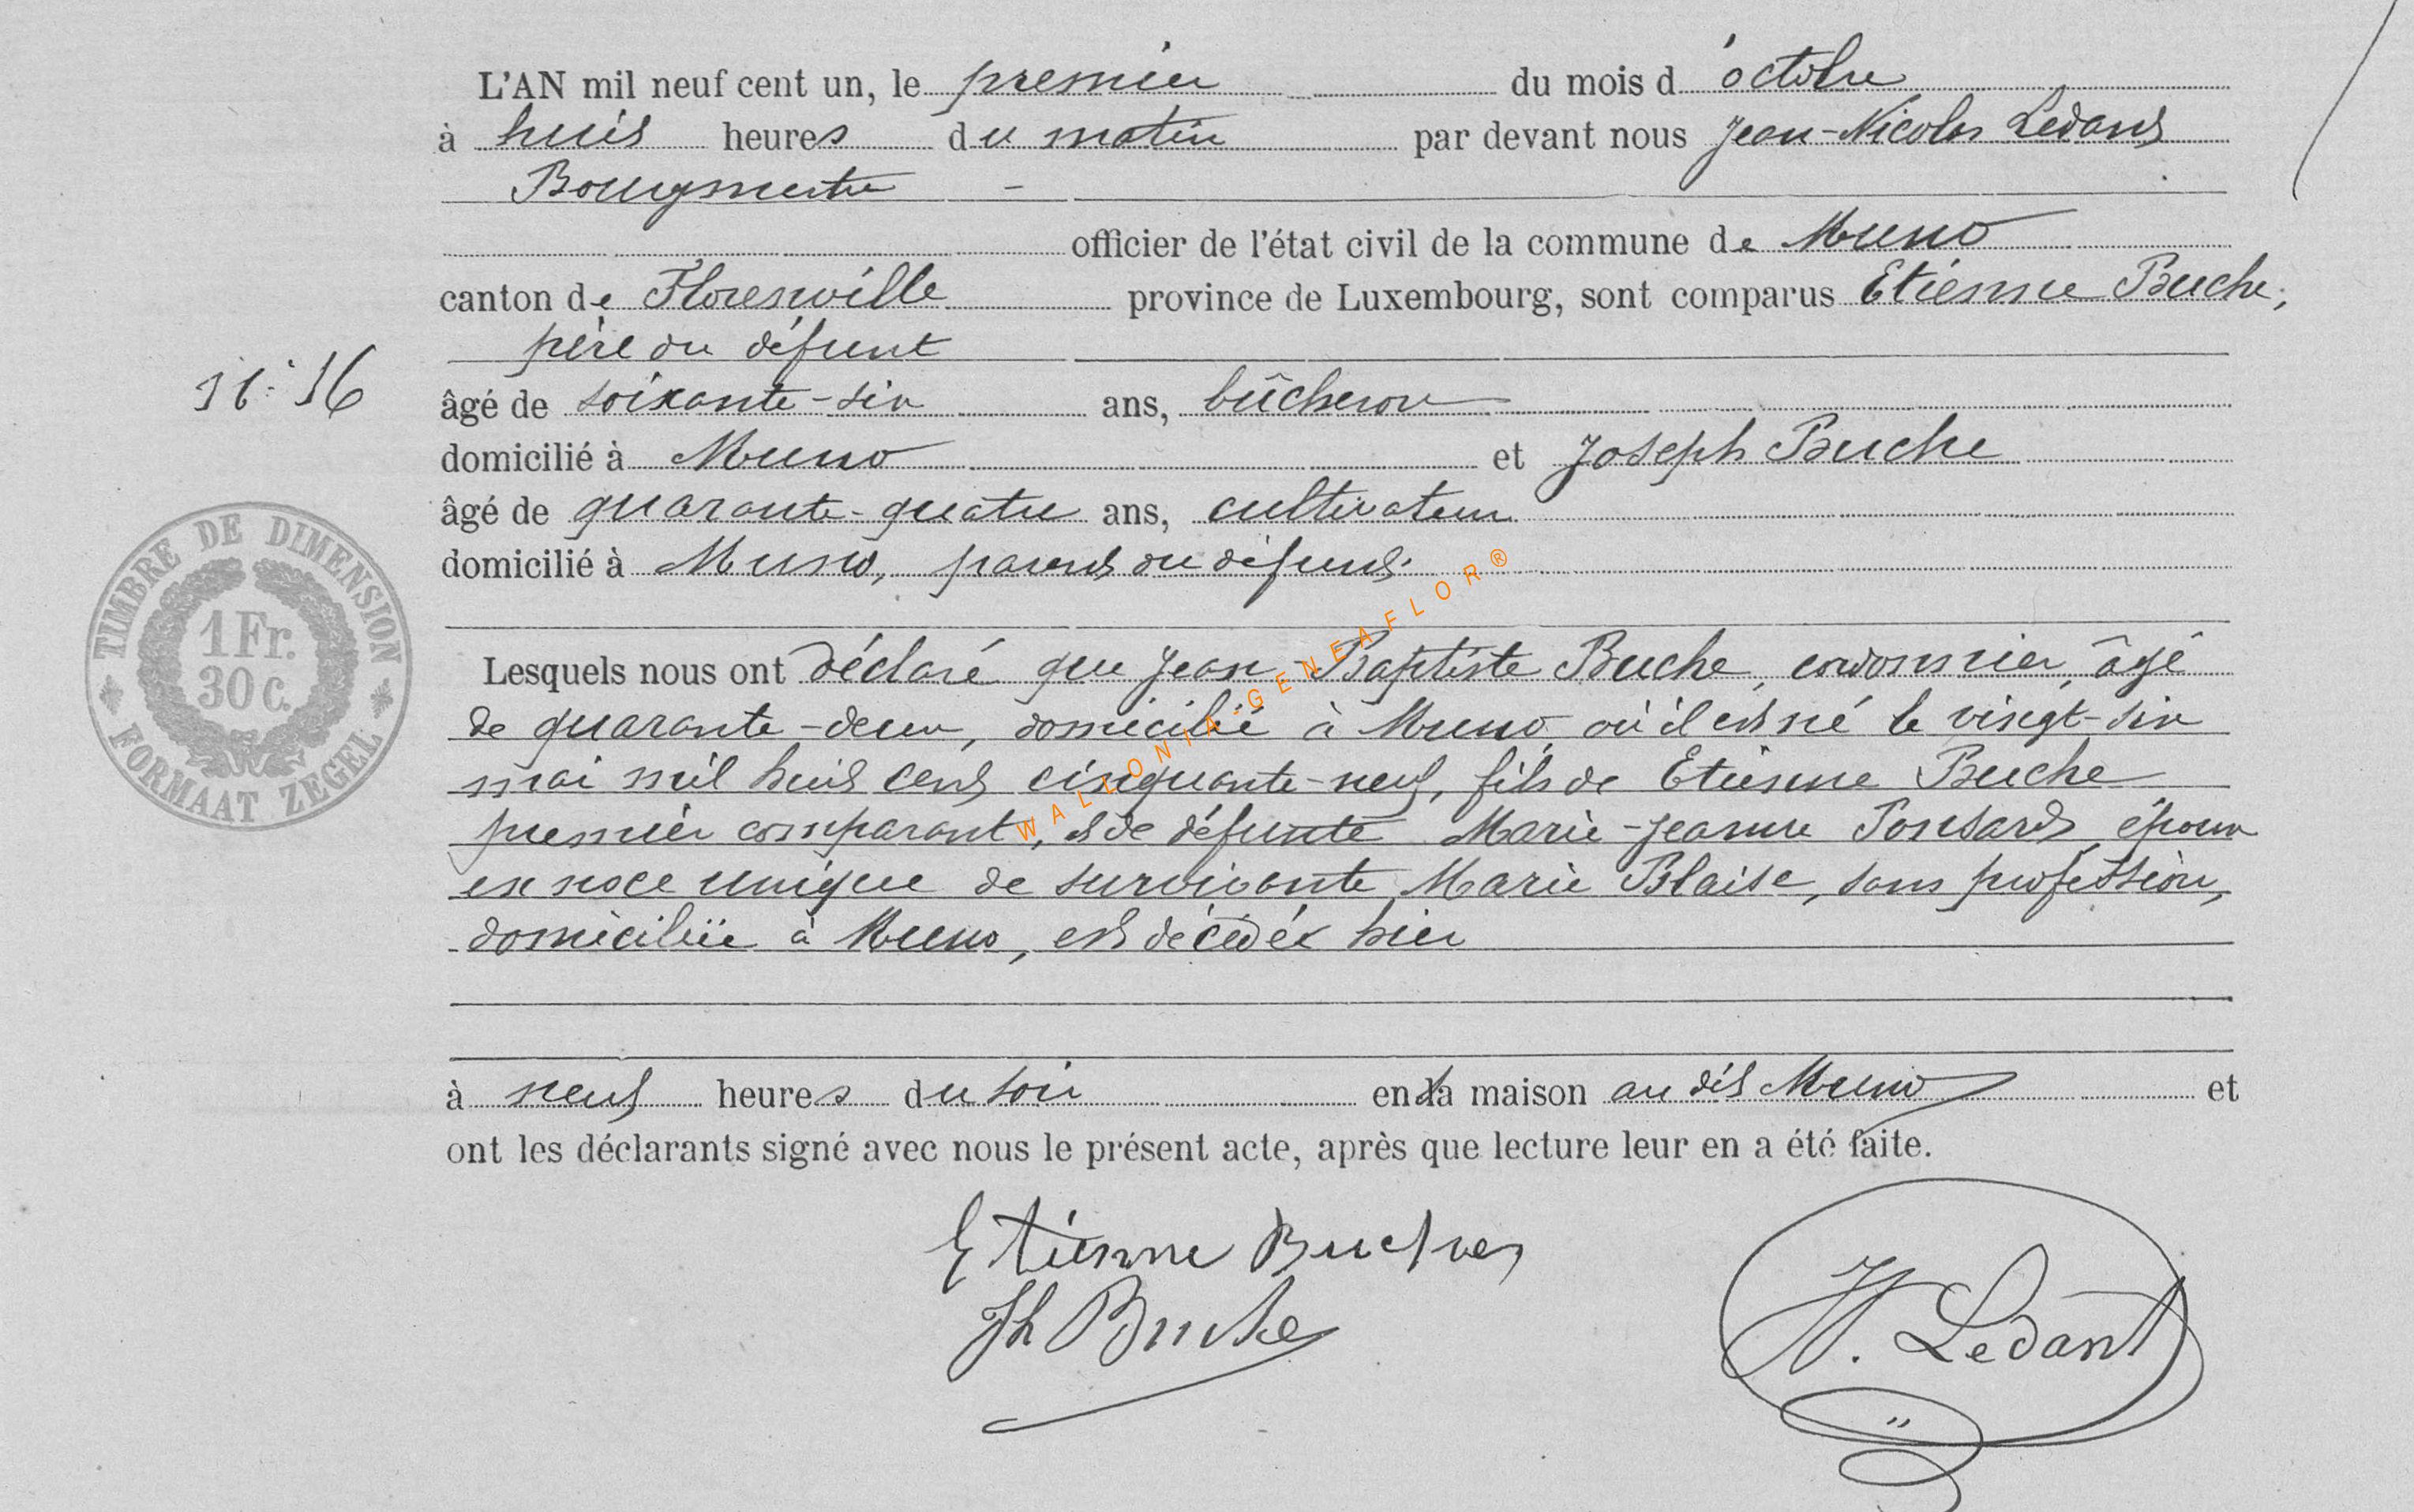 L'AN mil neuf cent un, le premier du mois d'octobre
à huit heures du matin par devant nous Jean-Nicolas Ledant
Bourgmestre
officier de l'état civil de la commune de Muno
canton de Florenville province de Luxembourg, sont comparus Etienne Buche,
père du défunt
N° 16
âgé de soixante-six ans, bûcheron
domicilié à Muno et Joseph Buche
âgé de quarante-quatre ans, cultivateur
domicilié à Muno, parent du défunt.
TIMBRE DE DIMENSION
1 Fr.
30 c.
FORMAAT ZEGEL
Lesquels nous ont déclaré que Jean Baptiste Buche, cordonnier, âgé
de quarante-deux, domicilié à Muno où il est né le vingt-six
mai mil huit cent cinquante-neuf, fils de Etienne Buche
premier comparant, et de défunte Marie-Jeanne Ponsard, époux
en noce unique de survivante Marie Blaise, sans profession,
domiciliée à Muno, est décédé hier
à neuf heures du soir en la maison au dit Muno et
ont les déclarants signé avec nous le présent acte, après que lecture leur en a été faite.
Etienne Buche
Jh Buche
N. Ledant
WALLONIA-GENEAFLOR®